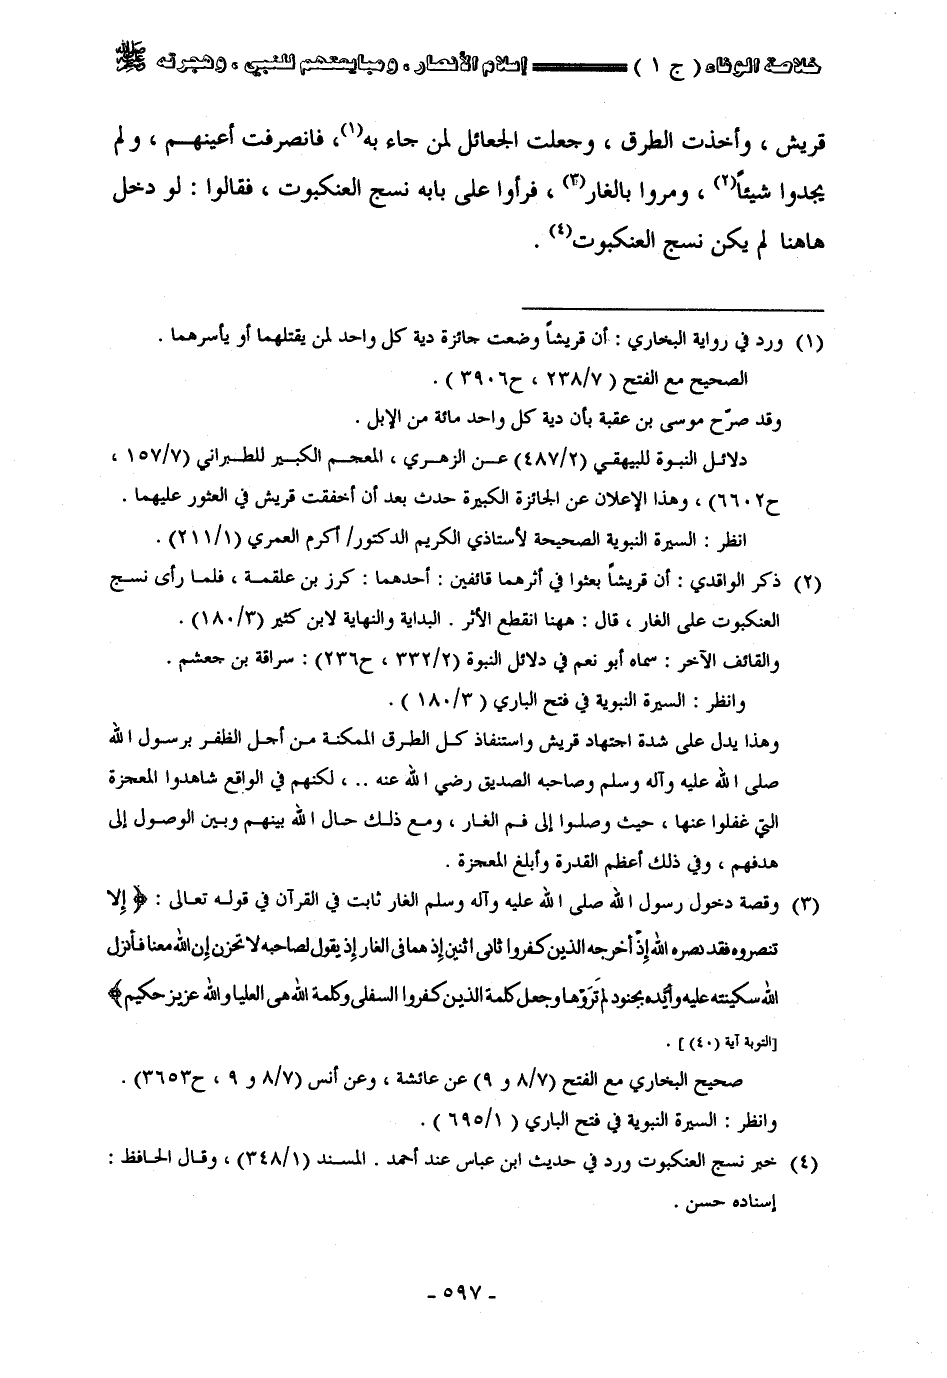 خلاصة الوفاء ( ج ١ ) ═════ إسلام الأنصار ، ومبايعتهم للنبي ، وهجرته ﷺ
قريش ، وأخذت الطرق ، وجعلت الجعائل لمن جاء به(١)، فانصرفت أعينهم ، ولم
يجدوا شيئاً(٢) ، ومروا بالغار(٣) ، فرأوا على بابه نسج العنكبوت ، فقالوا : لو دخل
هاهنا لم يكن نسج العنكبوت(٤) .
(١) ورد في رواية البخاري : أن قريشاً وضعت جائزة دية كل واحد لمن يقتلهما أو يأسرهما .
الصحيح مع الفتح ( ٢٣٨/٧ ، ح٣٩٠٦ ) .
وقد صرّح موسى بن عقبة بأن دية كل واحد مائة من الإبل .
دلائل النبوة للبيهقي (٤٨٧/٢) عن الزهري ، المعجم الكبير للطبراني (١٥٧/٧ ،
ح٦٦٠٢) ، وهذا الإعلان عن الجائزة الكبيرة حدث بعد أن أخفقت قريش في العثور عليهما .
انظر : السيرة النبوية الصحيحة لأستاذي الكريم الدكتور/ أكرم العمري (٢١١/١) .
(٢) ذكر الواقدي : أن قريشاً بعثوا في أثرهما قائفين : أحدهما : كرز بن علقمة ، فلما رأى نسج
العنكبوت على الغار ، قال : ههنا انقطع الأثر . البداية والنهاية لابن كثير (١٨٠/٣) .
والقائف الآخر : سماه أبو نعم في دلائل النبوة (٣٣٢/٢ ، ح٢٣٦) : سراقة بن جعشم .
وانظر : السيرة النبوية في فتح الباري ( ١٨٠/٣ ) .
وهذا يدل على شدة اجتهاد قريش واستنفاذ كل الطرق الممكنة من أجل الظفر برسول الله
صلى الله عليه وآله وسلم وصاحبه الصديق رضي الله عنه .. ، لكنهم في الواقع شاهدوا المعجزة
التي غفلوا عنها ، حيث وصلوا إلى فم الغار ، ومع ذلك حال الله بينهم وبين الوصول إلى
هدفهم ، وفي ذلك أعظم القدرة وأبلغ المعجزة .
(٣) وقصة دخول رسول الله صلى الله عليه وآله وسلم الغار ثابت في القرآن في قوله تعالى : ﴿ إلا
تنصروه فقد نصره الله إذ أخرجه الذين كفروا ثانى اثنين إذ هما فى الغار إذ يقول لصاحبه لا تحزن إن الله معنا فأنزل
الله سكينته عليه وأيده بجنود لم تَرَوْها وجعل كلمة الذين كفروا السفلى وكلمة الله هى العليا والله عزيز حكيم ﴾
[التوبة آية (٤٠)] .
صحيح البخاري مع الفتح (٨/٧ و ٩) عن عائشة ، وعن أنس (٨/٧ و ٩ ، ح٣٦٥٣) .
وانظر : السيرة النبوية في فتح الباري ( ٦٩٥/١ ) .
(٤) خبر نسج العنكبوت ورد في حديث ابن عباس عند أحمد . المسند (٣٤٨/١) ، وقال الحافظ :
إسناده حسن .
- ٥٩٧ -